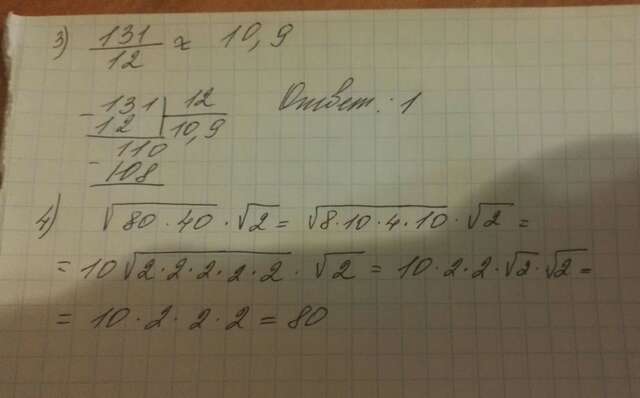 3) 131/12 ≈ 10,9
131 | 12
12 | 10,9
Ответ: 1
110
108
4) √80·40 · √2 = √8·10·4·10 · √2 =
= 10√2·2·2·2·2 · √2 = 10·2·2·√2·√2 =
= 10·2·2·2 = 80